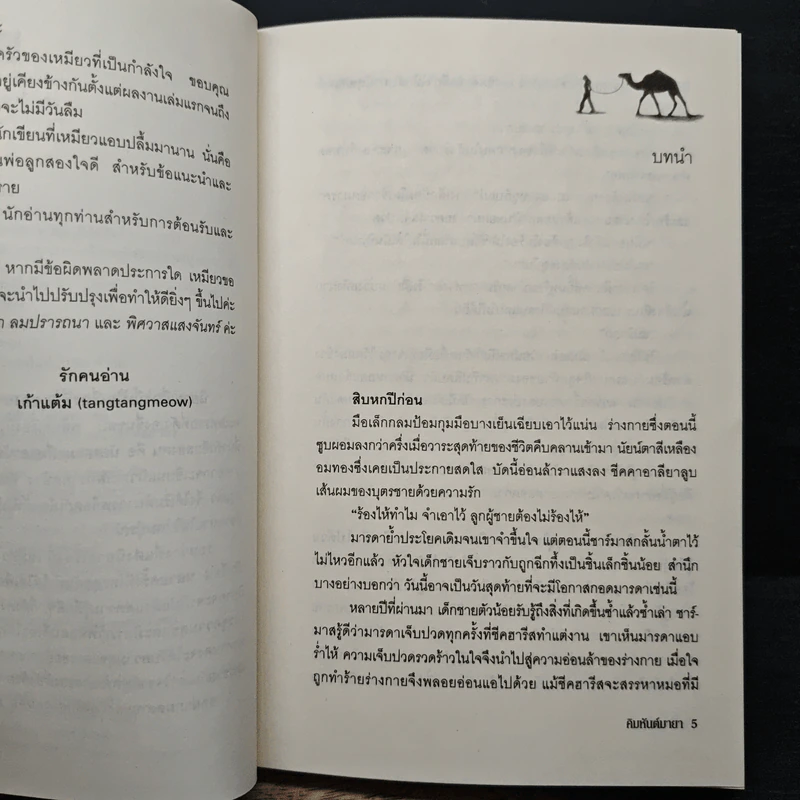 ครัวของเหมียวที่เป็นกำลังใจ ขอบคุณ
อยู่เคียงข้างกันตั้งแต่ผลงานเล่มแรกจนถึง
จะไม่มีวันลืม
นักเขียนที่เหมียวแอบปลื้มมานาน นั่นคือ
พ่อลูกสองใจดี สำหรับข้อแนะนำและ
นักอ่านทุกท่านสำหรับการต้อนรับและ
หากมีข้อผิดพลาดประการใด เหมียวขอ
จะนำไปปรับปรุงเพื่อทำให้ดียิ่งๆ ขึ้นไปค่ะ
ลมปรารถนา และ พิศวาสแสงจันทร์ ค่ะ
รักคนอ่าน
เก้าแต้ม (tangtangmeow)
บทนำ
สิบหกปีก่อน
มือเล็กกลมป้อมกุมมือบางเย็นเฉียบเอาไว้แน่น ร่างกายซึ่งตอนนี้
ซูบผอมลงกว่าครึ่งเมื่อวาระสุดท้ายของชีวิตคืบคลานเข้ามา นัยน์ตาสีเหลือง
อมทองซึ่งเคยเป็นประกายสดใส บัดนี้อ่อนล้าราแสงลง ชีคคาอาลียาลูบ
เส้นผมของบุตรชายด้วยความรัก
“ร้องไห้ทำไม จำเอาไว้ ลูกผู้ชายต้องไม่ร้องไห้”
มารดาย้ำประโยคเดิมจนเขาจำขึ้นใจ แต่ตอนนี้ชาร์มาสกลั้นน้ำตาไว้
ไม่ไหวอีกแล้ว หัวใจเด็กชายเจ็บราวกับถูกฉีกทึ้งเป็นชิ้นเล็กชิ้นน้อย สำนึก
บางอย่างบอกว่า วันนี้อาจเป็นวันสุดท้ายที่จะมีโอกาสกอดมารดาเช่นนี้
หลายปีที่ผ่านมา เด็กชายตัวน้อยรับรู้ถึงสิ่งที่เกิดขึ้นซ้ำแล้วซ้ำเล่า ชาร์-
มาสรู้ดีว่ามารดาเจ็บปวดทุกครั้งที่ชีคฮารีสทำแต่งาน เขาเห็นมารดาแอบ
ร่ำไห้ ความเจ็บปวดรวดร้าวในใจจึงนำไปสู่ความอ่อนล้าของร่างกาย เมื่อใจ
ถูกทำร้ายร่างกายจึงพลอยอ่อนแอไปด้วย แม้ชีคฮารีสจะสรรหาหมอที่มี
คิมหันต์มายา 5